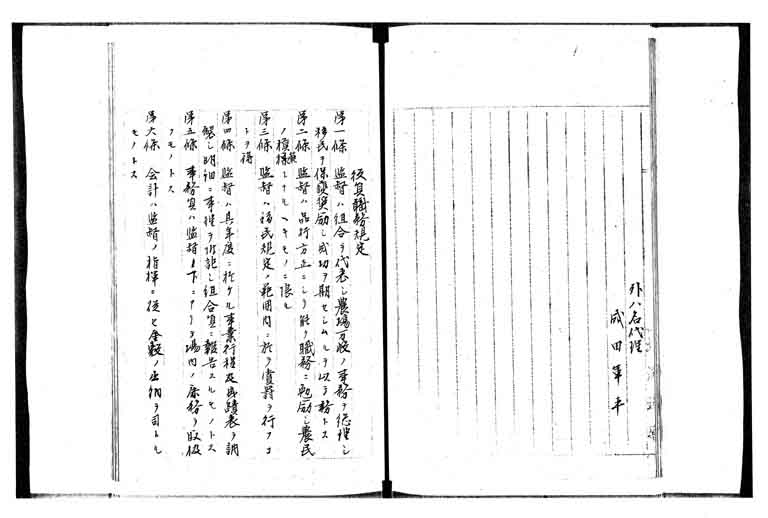 外八名代理
成田軍平
役員職務規定
第一條 監督ハ組合ヲ代表シ農場万般ノ事務ヲ總理シ
移民ヲ保護奨励シ成功ヲ期セシムルヲ以テ務トス
第二條 監督ハ品行方正ニシテ能ク職務ニ勉励シ農民
ノ模様トナルヘキモノニ限ル
第三條 監督ハ移民規定ノ範囲内ニ於テ賞罰ヲ行フコ
トヲ得
第四條 監督ハ其年度ニ於ケル事業行程及成蹟表ヲ調
製シ明細ニ事理ヲ附記シ組合員ニ報告スルモノトス
第五條 事務員ハ監督ノ下ニアリテ場内ノ庶務ヲ取扱
フモノトス
第六條 会計ハ監督ノ指揮ニ従ヒ金穀ノ出納ヲ司トル
モノトス